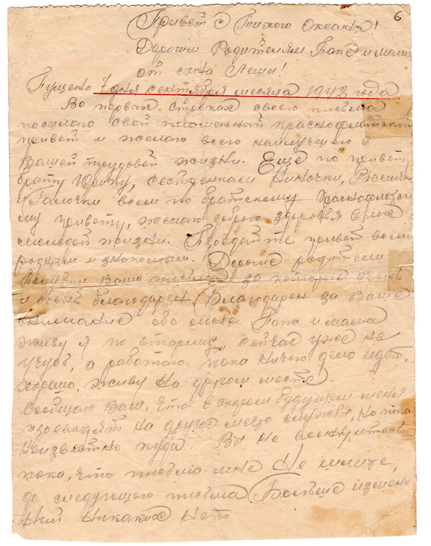 6
Привет с Тихого Океана!
Дорогим Родителям Папе и маме
от сына Леши!
Пущено 7 дня сентября месяца 1942 года
Во первых строках своего письма
посылаю свой пламенный краснофлотский
привет и желаю всего наилучшего в
Вашей трудовой жизни. Ещё по привету
брату Юрику, сестренкам Ниночки,
Галочки всем по братскому Краснофлотско
му привету, желаю доброго здоровья в
молодой жизни. Передайте привет всем
родным и знакомым. Дорогие родители
Ваши письма за которые очень
и очень благодарен (Благодарен за Ваше
внимание обо мне. Папа и мама
живу я по старому, сейчас уже не
учусь, а работаю. пока ничего дело идет
хорошо. Живу на другом месте
Сообщаю Вам, что в скором будущем меня
переводят на другое место службы, но пока
неизвестно куда. Вы не
пока, что письма мне не пишите,
до следующего письма (Больше измене
ний никаких нет